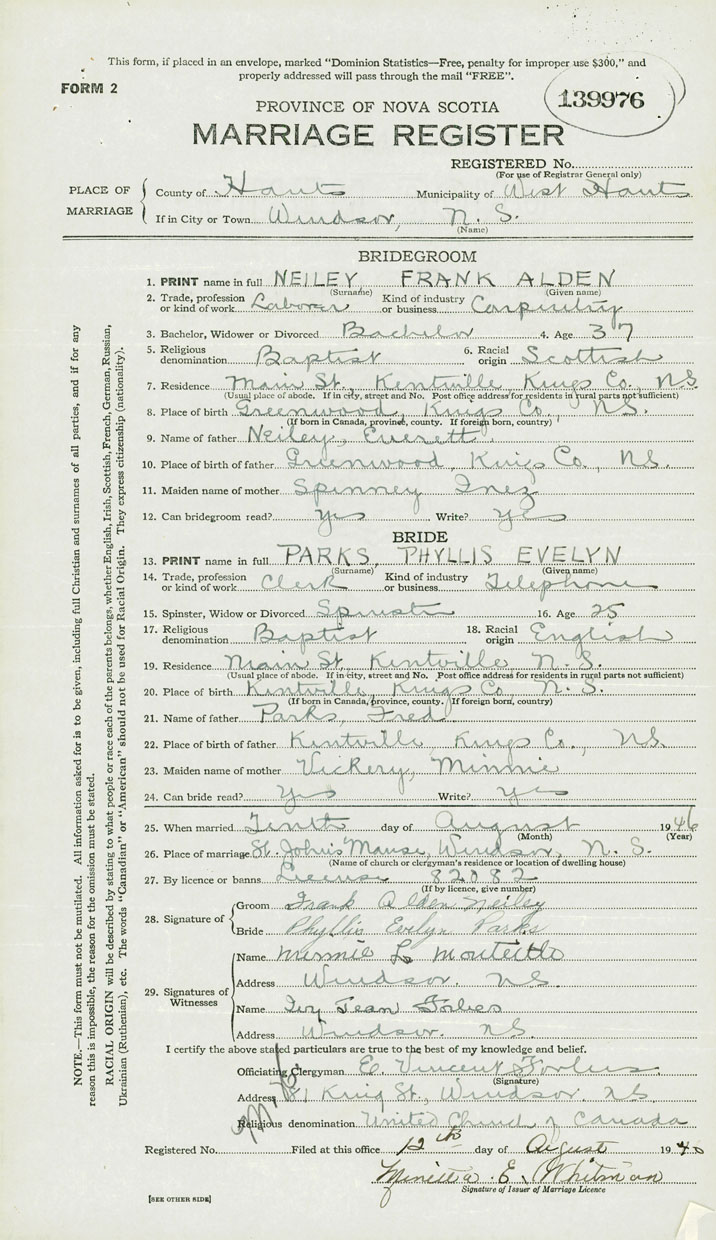 This form, if placed in an envelope, marked “Dominion Statistics—Free, penalty for improper use $300,” and
properly addressed will pass through the mail “FREE”.
FORM 2
139976
PROVINCE OF NOVA SCOTIA
MARRIAGE REGISTER
REGISTERED No.
(For use of Registrar General only)
PLACE OF MARRIAGE
County of Hants Municipality of West Hants
If in City or Town Windsor, N. S.
(Name)
BRIDEGROOM
1. PRINT name in full NEILEY FRANK ALDEN
(Surname) (Given name)
2. Trade, profession or kind of work Laborer Kind of industry or business Carpentry
3. Bachelor, Widower or Divorced Bachelor 4. Age 37
5. Religious denomination Baptist 6. Racial origin Scottish
7. Residence Main St., Kentville, Kings Co., N.S.
(Usual place of abode. If in city, street and No. Post office address for residents in rural parts not sufficient)
8. Place of birth Greenwood, Kings Co., N.S.
(If born in Canada, province, county. If foreign born, country)
9. Name of father Neiley, Everett
10. Place of birth of father Greenwood, Kings Co., N.S.
11. Maiden name of mother Spinney Inez
12. Can bridegroom read? yes Write? yes
BRIDE
13. PRINT name in full PARKS, PHYLLIS EVELYN
(Surname) (Given name)
14. Trade, profession or kind of work Clerk Kind of industry or business Telephone
15. Spinster, Widow or Divorced Spinster 16. Age 25
17. Religious denomination Baptist 18. Racial origin English
19. Residence Main St., Kentville, N. S.
(Usual place of abode. If in city, street and No. Post office address for residents in rural parts not sufficient)
20. Place of birth Kentville, Kings Co., N. S.
(If born in Canada, province, county. If foreign born, country)
21. Name of father Parks, Fred
22. Place of birth of father Kentville, Kings Co., N.S.
23. Maiden name of mother Vickery, Minnie
24. Can bride read? Yes Write? yes
25. When married Tenth day of August 1946
(Month) (Year)
26. Place of marriage St. John's Manse, Windsor, N. S.
(Name of church or clergyman's residence or location of dwelling house)
27. By licence or banns License 82082
(If by licence, give number)
28. Signature of
Groom Frank Alden Neiley
Bride Phyllis Evelyn Parks
29. Signatures of Witnesses
Name Minnie L.
Address Windsor. N.S.
Name Ivy Jean Forbes
Address Windsor. N.S.
I certify the above stated particulars are true to the best of my knowledge and belief.
Officiating Clergyman E. Vincent Forbes
(Signature)
Address King St., Windsor. N.S.
Religious denomination United Church of Canada
Registered No. Filed at this office 12th day of August 19
E. Whitman
Signature of Issuer of Marriage Licence
[SEE OTHER SIDE]
NOTE.—This form must not be mutilated. All information asked for is to be given, including full Christian and surnames of all parties, and if for any
reason this is impossible, the reason for the omission must be stated.
RACIAL ORIGIN will be described by stating to what people or race each of the parents belongs, whether English, Irish, Scottish, French, German, Russian,
Ukrainian (Ruthenian), etc. The words “Canadian” or “American” should not be used for Racial Origin. They express citizenship (nationality).